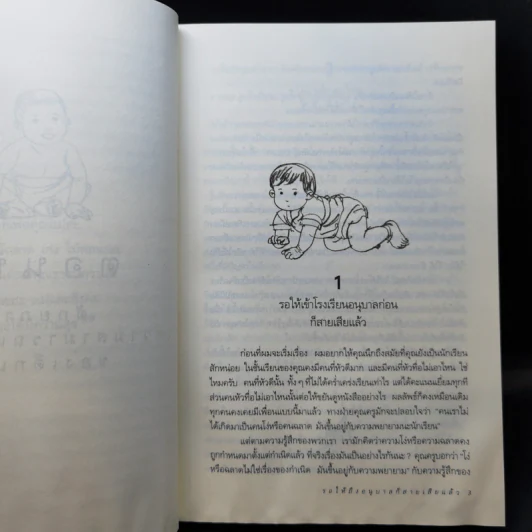 1
รอให้เข้าโรงเรียนอนุบาลก่อน
ก็สายเสียแล้ว
ก่อนที่ผมจะเริ่มเรื่อง ผมอยากให้คุณนึกถึงสมัยที่คุณยังเป็นนักเรียน
สักหน่อย ในชั้นเรียนของคุณคงมีคนที่หัวดีมาก และมีคนที่หัวที่อไม่เอาไหน ใช่
ไหมครับ คนที่หัวดีนั้น ทั้งๆ ที่ไม่ได้คร่ำเคร่งเรียนเท่าไร แต่ได้คะแนนเยี่ยมทุกที
ส่วนคนหัวทื่อไม่เอาไหนนั้นต่อให้ขยันดูหนังสืออย่างไร ผลลัพธ์ก็คงเหมือนเดิม
ทุกคนคงเคยมีเพื่อนแบบนี้มาแล้ว ทางฝ่ายคุณครูมักจะปลอบใจว่า “คนเราไม่
ได้เกิดมาเป็นคนโง่หรือคนฉลาด มันขึ้นอยู่กับความพยายามนะนักเรียน”
แต่ตามความรู้สึกของพวกเรา เรามักคิดว่าความโง่หรือความฉลาดคง
ถูกกำหนดมาตั้งแต่กำเนิดแล้ว ที่จริงเรื่องมันเป็นอย่างไรกันนะ? คุณครูบอกว่า “โง่
หรือฉลาดไม่ใช่เรื่องของกำเนิด มันขึ้นอยู่กับความพยายาม” กับความรู้สึกของ
รอให้ถึงอนุบาลก็สายเสียแล้ว 3